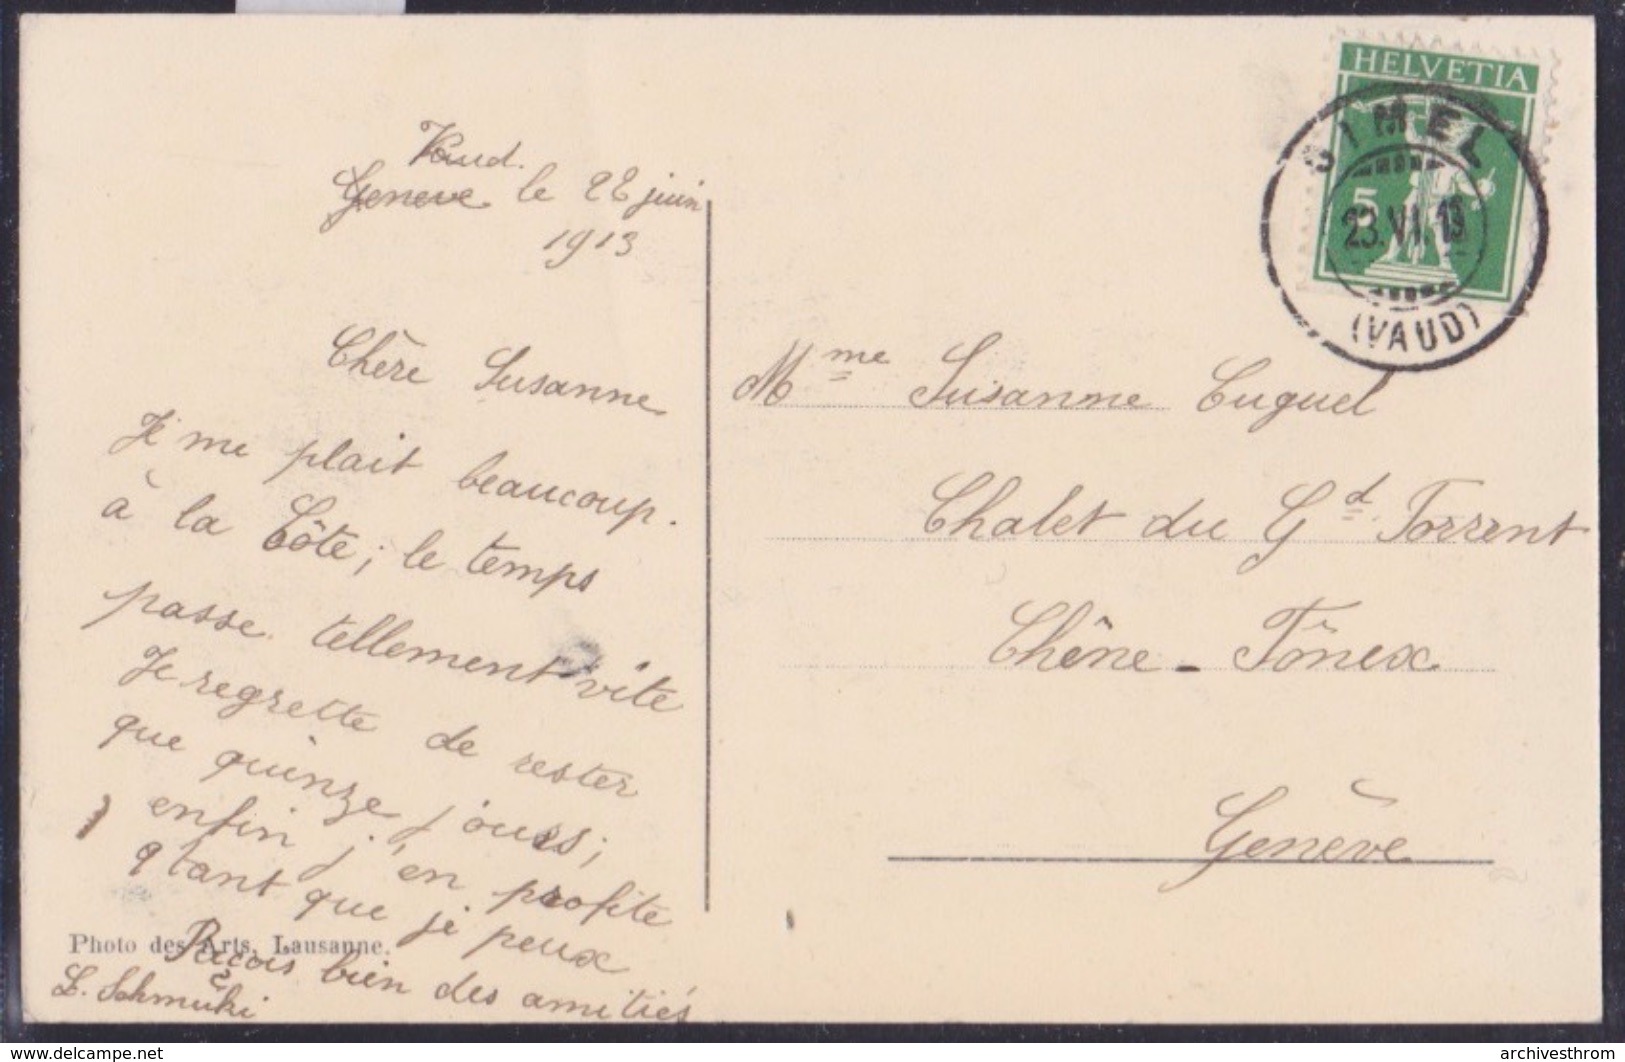 Vaud.
Geneve le 22 juin
1913
Chère Susanne
Je me plait beaucoup.
à la Côte; le temps
passe tellement vite
Je regrette de rester
que quinze jours;
enfin j'en profite
tant que je peux
Reçois bien des amitiés
L. Schmuki
Photo des Arts, Lausanne.
HELVETIA
5
GIMEL
23.VI.13
(VAUD)
Mme Susanne Cuguel
Chalet du Gd Torrent
Chêne - Tônex
Genève
delcampe.net
archivesthrom